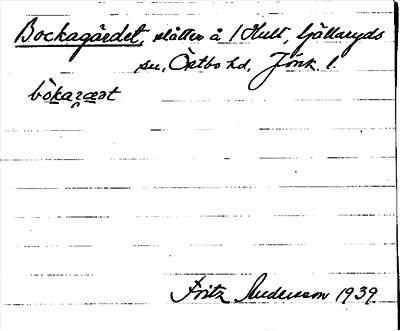 Bockagärdet, slätter å 1 Hult, Gällaryds
sn, Östbo hd, Jönk. l.
bòkaɡ̯æɹt
Fritz Andersson 1939